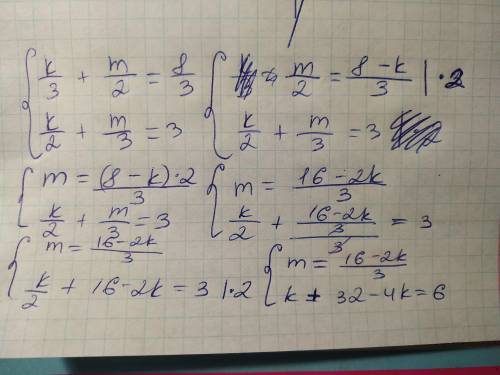 { k/3 + m/2 = 8/3
k/2 + m/3 = 3
{ m/2 = (8 - k)/3 | · 2
k/2 + m/3 = 3
{ m = (8 - k) · 2/3
k/2 + m/3 = 3
{ m = (16 - 2k)/3
k/2 + ((16 - 2k)/3)/3 = 3
{ m = (16 - 2k)/3
k/2 + 16 - 2k = 3 | · 2
{ m = (16 - 2k)/3
k + 32 - 4k = 6